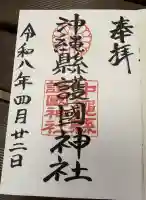 奉拝
沖縄縣護國神社
沖縄縣護國神社
令和八年四月廿二日